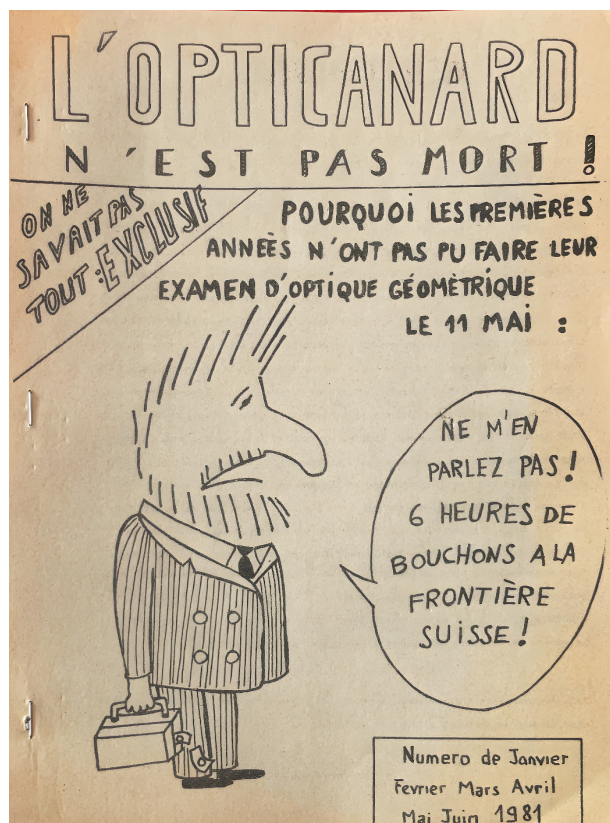 L'OPTICANARD
N'EST PAS MORT !
ON NE
SAVAIT PAS
TOUT : EXCLUSIF
POURQUOI LES PREMIÈRES
ANNEÈS N'ONT PAS PU FAIRE LEUR
EXAMEN D'OPTIQUE GÉOMÈTRIQUE
LE 11 MAI :
NE M'EN
PARLEZ PAS !
6 HEURES DE
BOUCHONS A LA
FRONTIÈRE
SUISSE !
Numero de Janvier
Fevrier Mars Avril
Mai Juin 1981